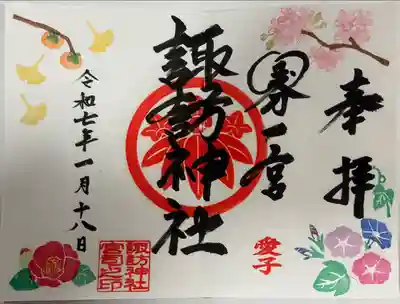 奉拝
一宮
愛子
諏訪神社
諏訪神社
宮司之印
令和七年一月十八日